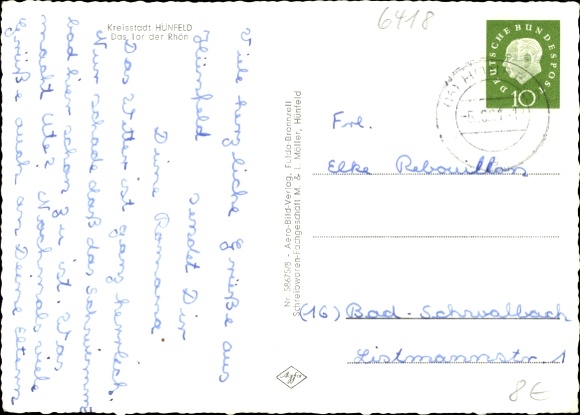 6418
Kreisstadt HÜNFELD
Das Tor der Rhön
DEUTSCHE BUNDESPOST
10
Viele herzliche Grüße aus
Hünfeld sendet Dir
Deine Romana
Das Wetter ist ganz herrlich.
Nur schade daß das Schwimm-
bad hier schon zu ist. Was
macht Ute? Nochmals viele
Grüße auch an Deine Eltern
Nr. 58675/8 - Aero-Bild-Verlag, Fulda-Bronnzell
Schreibwaren-Fachgeschäft M. & L. Möller, Hünfeld
Frl.
Elke Rebouillon
(16) Bad-Schwalbach
Listmannstr. 1
Agfa
8€